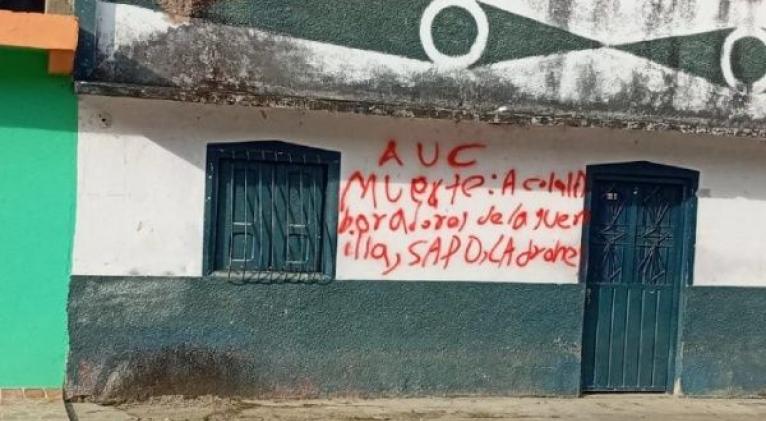 AUC
Muerte: A colab
boradores de la guer
illa, SAPO, LAdrones